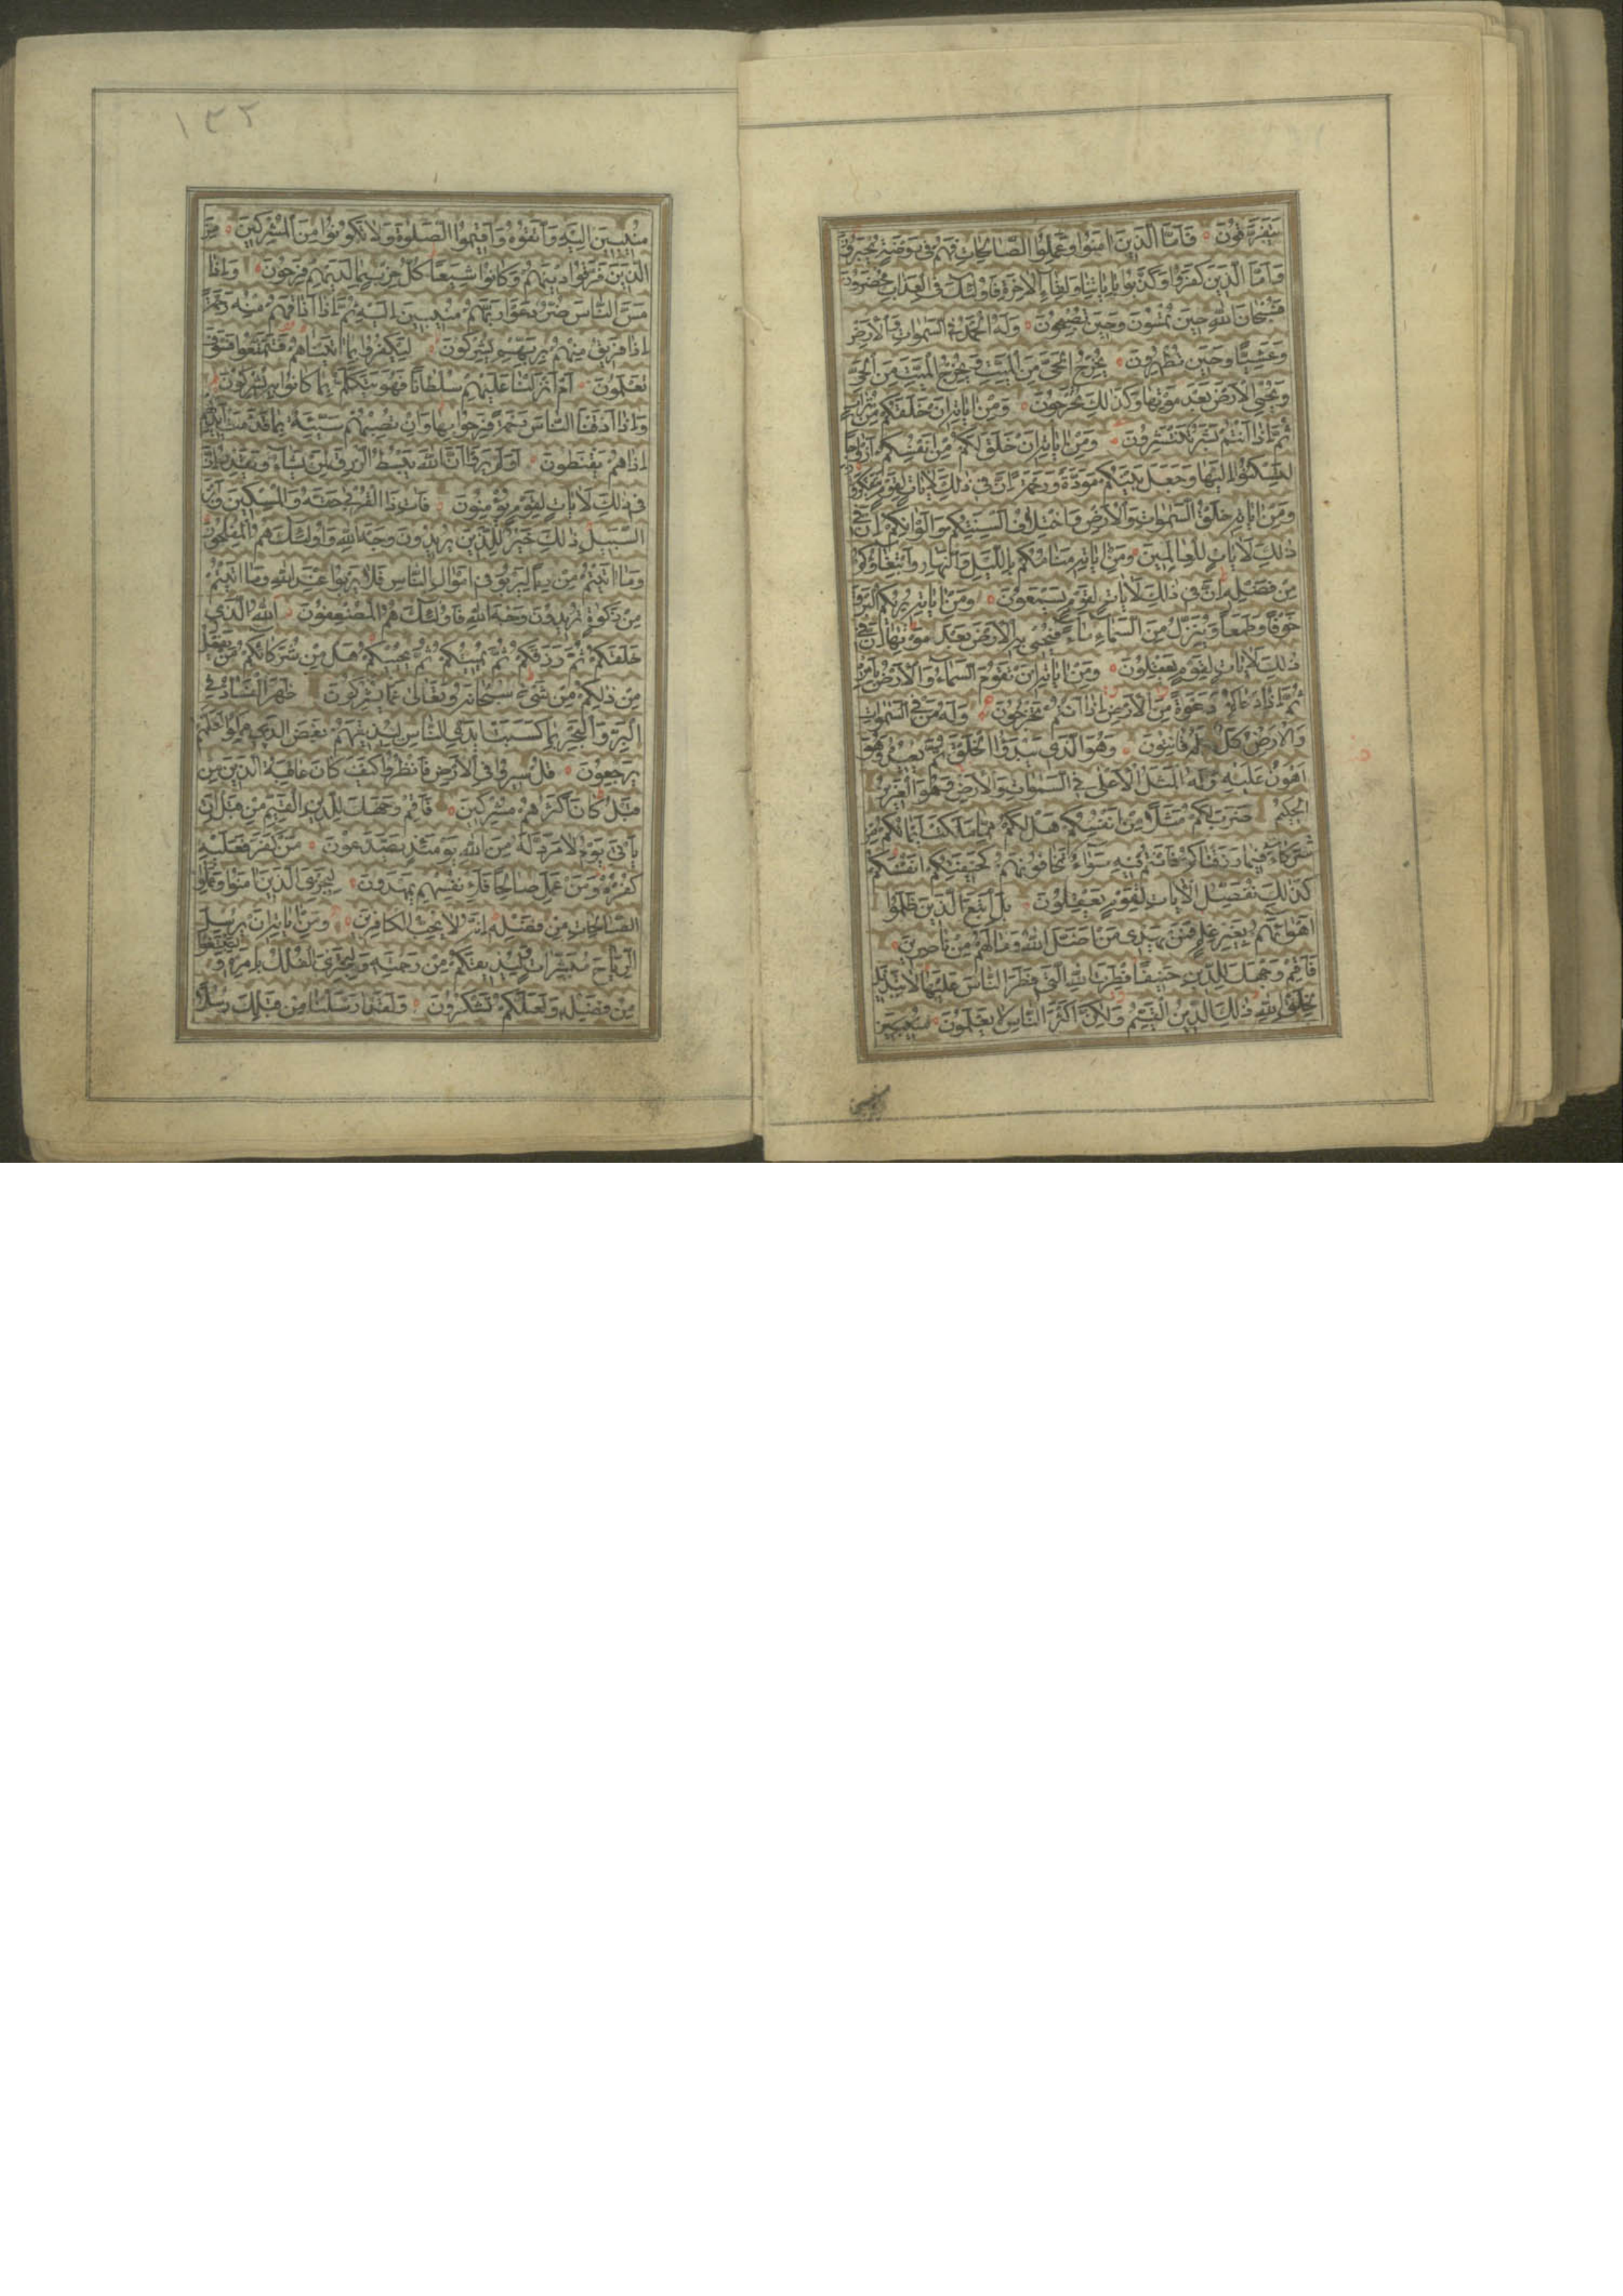 يَتَفَرَّقُونَ فَاَمَّا الَّذِينَ اٰمَنُوا وَعَمِلُوا الصَّالِحَاتِ فَهُمْ فِى رَوْضَةٍ يُحْبَرُونَ
وَاَمَّا الَّذِينَ كَفَرُوا وَكَذَّبُوا بِاٰيَاتِنَا وَلِقَاءِ الْاٰخِرَةِ فَاُولٰئِكَ فِى الْعَذَابِ مُحْضَرُونَ
فَسُبْحَانَ اللّٰهِ حِينَ تُمْسُونَ وَحِينَ تُصْبِحُونَ وَلَهُ الْحَمْدُ فِى السَّمٰوَاتِ وَالْاَرْضِ
وَعَشِيًّا وَحِينَ تُظْهِرُونَ يُخْرِجُ الْحَىَّ مِنَ الْمَيِّتِ وَيُخْرِجُ الْمَيِّتَ مِنَ الْحَىِّ
وَيُحْيِى الْاَرْضَ بَعْدَ مَوْتِهَا وَكَذٰلِكَ تُخْرَجُونَ وَمِنْ اٰيَاتِهِ اَنْ خَلَقَكُمْ مِنْ تُرَابٍ
ثُمَّ اِذَا اَنْتُمْ بَشَرٌ تَنْتَشِرُونَ وَمِنْ اٰيَاتِهِ اَنْ خَلَقَ لَكُمْ مِنْ اَنْفُسِكُمْ اَزْوَاجًا
لِتَسْكُنُوا اِلَيْهَا وَجَعَلَ بَيْنَكُمْ مَوَدَّةً وَرَحْمَةً اِنَّ فِى ذٰلِكَ لَاٰيَاتٍ لِقَوْمٍ يَتَفَكَّرُونَ
وَمِنْ اٰيَاتِهِ خَلْقُ السَّمٰوَاتِ وَالْاَرْضِ وَاخْتِلَافُ اَلْسِنَتِكُمْ وَاَلْوَانِكُمْ اِنَّ فِى
ذٰلِكَ لَاٰيَاتٍ لِلْعَالِمِينَ وَمِنْ اٰيَاتِهِ مَنَامُكُمْ بِاللَّيْلِ وَالنَّهَارِ وَابْتِغَاؤُكُمْ
مِنْ فَضْلِهِ اِنَّ فِى ذٰلِكَ لَاٰيَاتٍ لِقَوْمٍ يَسْمَعُونَ وَمِنْ اٰيَاتِهِ يُرِيكُمُ الْبَرْقَ
خَوْفًا وَطَمَعًا وَيُنَزِّلُ مِنَ السَّمَاءِ مَاءً فَيُحْيِى بِهِ الْاَرْضَ بَعْدَ مَوْتِهَا اِنَّ فِى
ذٰلِكَ لَاٰيَاتٍ لِقَوْمٍ يَعْقِلُونَ وَمِنْ اٰيَاتِهِ اَنْ تَقُومَ السَّمَاءُ وَالْاَرْضُ بِاَمْرِهِ
ثُمَّ اِذَا دَعَاكُمْ دَعْوَةً مِنَ الْاَرْضِ اِذَا اَنْتُمْ تَخْرُجُونَ وَلَهُ مَنْ فِى السَّمٰوَاتِ
وَالْاَرْضِ كُلٌّ لَهُ قَانِتُونَ وَهُوَ الَّذِى يَبْدَؤُا الْخَلْقَ ثُمَّ يُعِيدُهُ وَهُوَ
اَهْوَنُ عَلَيْهِ وَلَهُ الْمَثَلُ الْاَعْلٰى فِى السَّمٰوَاتِ وَالْاَرْضِ وَهُوَ الْعَزِيزُ
الْحَكِيمُ ضَرَبَ لَكُمْ مَثَلًا مِنْ اَنْفُسِكُمْ هَلْ لَكُمْ مِمَّا مَلَكَتْ اَيْمَانُكُمْ مِنْ
شُرَكَاءَ فِيمَا رَزَقْنَاكُمْ فَاَنْتُمْ فِيهِ سَوَاءٌ تَخَافُونَهُمْ كَخِيفَتِكُمْ اَنْفُسَكُمْ
كَذٰلِكَ نُفَصِّلُ الْاٰيَاتِ لِقَوْمٍ يَعْقِلُونَ بَلِ اتَّبَعَ الَّذِينَ ظَلَمُوا
اَهْوَاءَهُمْ بِغَيْرِ عِلْمٍ فَمَنْ يَهْدِى مَنْ اَضَلَّ اللّٰهُ وَمَا لَهُمْ مِنْ نَاصِرِينَ
فَاَقِمْ وَجْهَكَ لِلدِّينِ حَنِيفًا فِطْرَتَ اللّٰهِ الَّتِى فَطَرَ النَّاسَ عَلَيْهَا لَا تَبْدِيلَ
لِخَلْقِ اللّٰهِ ذٰلِكَ الدِّينُ الْقَيِّمُ وَلٰكِنَّ اَكْثَرَ النَّاسِ لَا يَعْلَمُونَ مُنِيبِينَ
منيبين
١٣٢
مُنِيبِينَ اِلَيْهِ وَاتَّقُوهُ وَاَقِيمُوا الصَّلٰوةَ وَلَا تَكُونُوا مِنَ الْمُشْرِكِينَ مِنَ
الَّذِينَ فَرَّقُوا دِينَهُمْ وَكَانُوا شِيَعًا كُلُّ حِزْبٍ بِمَا لَدَيْهِمْ فَرِحُونَ وَاِذَا
مَسَّ النَّاسَ ضُرٌّ دَعَوْا رَبَّهُمْ مُنِيبِينَ اِلَيْهِ ثُمَّ اِذَا اَذَاقَهُمْ مِنْهُ رَحْمَةً
اِذَا فَرِيقٌ مِنْهُمْ بِرَبِّهِمْ يُشْرِكُونَ لِيَكْفُرُوا بِمَا اٰتَيْنَاهُمْ فَتَمَتَّعُوا فَسَوْفَ
تَعْلَمُونَ اَمْ اَنْزَلْنَا عَلَيْهِمْ سُلْطَانًا فَهُوَ يَتَكَلَّمُ بِمَا كَانُوا بِهِ يُشْرِكُونَ
وَاِذَا اَذَقْنَا النَّاسَ رَحْمَةً فَرِحُوا بِهَا وَاِنْ تُصِبْهُمْ سَيِّئَةٌ بِمَا قَدَّمَتْ اَيْدِيهِمْ
اِذَا هُمْ يَقْنَطُونَ اَوَلَمْ يَرَوْا اَنَّ اللّٰهَ يَبْسُطُ الرِّزْقَ لِمَنْ يَشَاءُ وَيَقْدِرُ اِنَّ
فِى ذٰلِكَ لَاٰيَاتٍ لِقَوْمٍ يُؤْمِنُونَ فَاٰتِ ذَا الْقُرْبٰى حَقَّهُ وَالْمِسْكِينَ وَابْنَ
السَّبِيلِ ذٰلِكَ خَيْرٌ لِلَّذِينَ يُرِيدُونَ وَجْهَ اللّٰهِ وَاُولٰئِكَ هُمُ الْمُفْلِحُونَ
وَمَا اٰتَيْتُمْ مِنْ رِبًا لِيَرْبُوَ فِى اَمْوَالِ النَّاسِ فَلَا يَرْبُوا عِنْدَ اللّٰهِ وَمَا اٰتَيْتُمْ
مِنْ زَكٰوةٍ تُرِيدُونَ وَجْهَ اللّٰهِ فَاُولٰئِكَ هُمُ الْمُضْعِفُونَ اَللّٰهُ الَّذِى
خَلَقَكُمْ ثُمَّ رَزَقَكُمْ ثُمَّ يُمِيتُكُمْ ثُمَّ يُحْيِيكُمْ هَلْ مِنْ شُرَكَائِكُمْ مَنْ يَفْعَلُ
مِنْ ذٰلِكُمْ مِنْ شَىْءٍ سُبْحَانَهُ وَتَعَالٰى عَمَّا يُشْرِكُونَ ظَهَرَ الْفَسَادُ فِى
الْبَرِّ وَالْبَحْرِ بِمَا كَسَبَتْ اَيْدِى النَّاسِ لِيُذِيقَهُمْ بَعْضَ الَّذِى عَمِلُوا لَعَلَّهُمْ
يَرْجِعُونَ قُلْ سِيرُوا فِى الْاَرْضِ فَانْظُرُوا كَيْفَ كَانَ عَاقِبَةُ الَّذِينَ مِنْ
قَبْلُ كَانَ اَكْثَرُهُمْ مُشْرِكِينَ فَاَقِمْ وَجْهَكَ لِلدِّينِ الْقَيِّمِ مِنْ قَبْلِ اَنْ
يَاْتِىَ يَوْمٌ لَا مَرَدَّ لَهُ مِنَ اللّٰهِ يَوْمَئِذٍ يَصَّدَّعُونَ مَنْ كَفَرَ فَعَلَيْهِ
كُفْرُهُ وَمَنْ عَمِلَ صَالِحًا فَلِاَنْفُسِهِمْ يَمْهَدُونَ لِيَجْزِىَ الَّذِينَ اٰمَنُوا وَعَمِلُوا
الصَّالِحَاتِ مِنْ فَضْلِهِ اِنَّهُ لَا يُحِبُّ الْكَافِرِينَ وَمِنْ اٰيَاتِهِ اَنْ يُرْسِلَ
الرِّيَاحَ مُبَشِّرَاتٍ وَلِيُذِيقَكُمْ مِنْ رَحْمَتِهِ وَلِتَجْرِىَ الْفُلْكُ بِاَمْرِهِ وَلِتَبْتَغُوا
مِنْ فَضْلِهِ وَلَعَلَّكُمْ تَشْكُرُونَ وَلَقَدْ اَرْسَلْنَا مِنْ قَبْلِكَ رُسُلًا